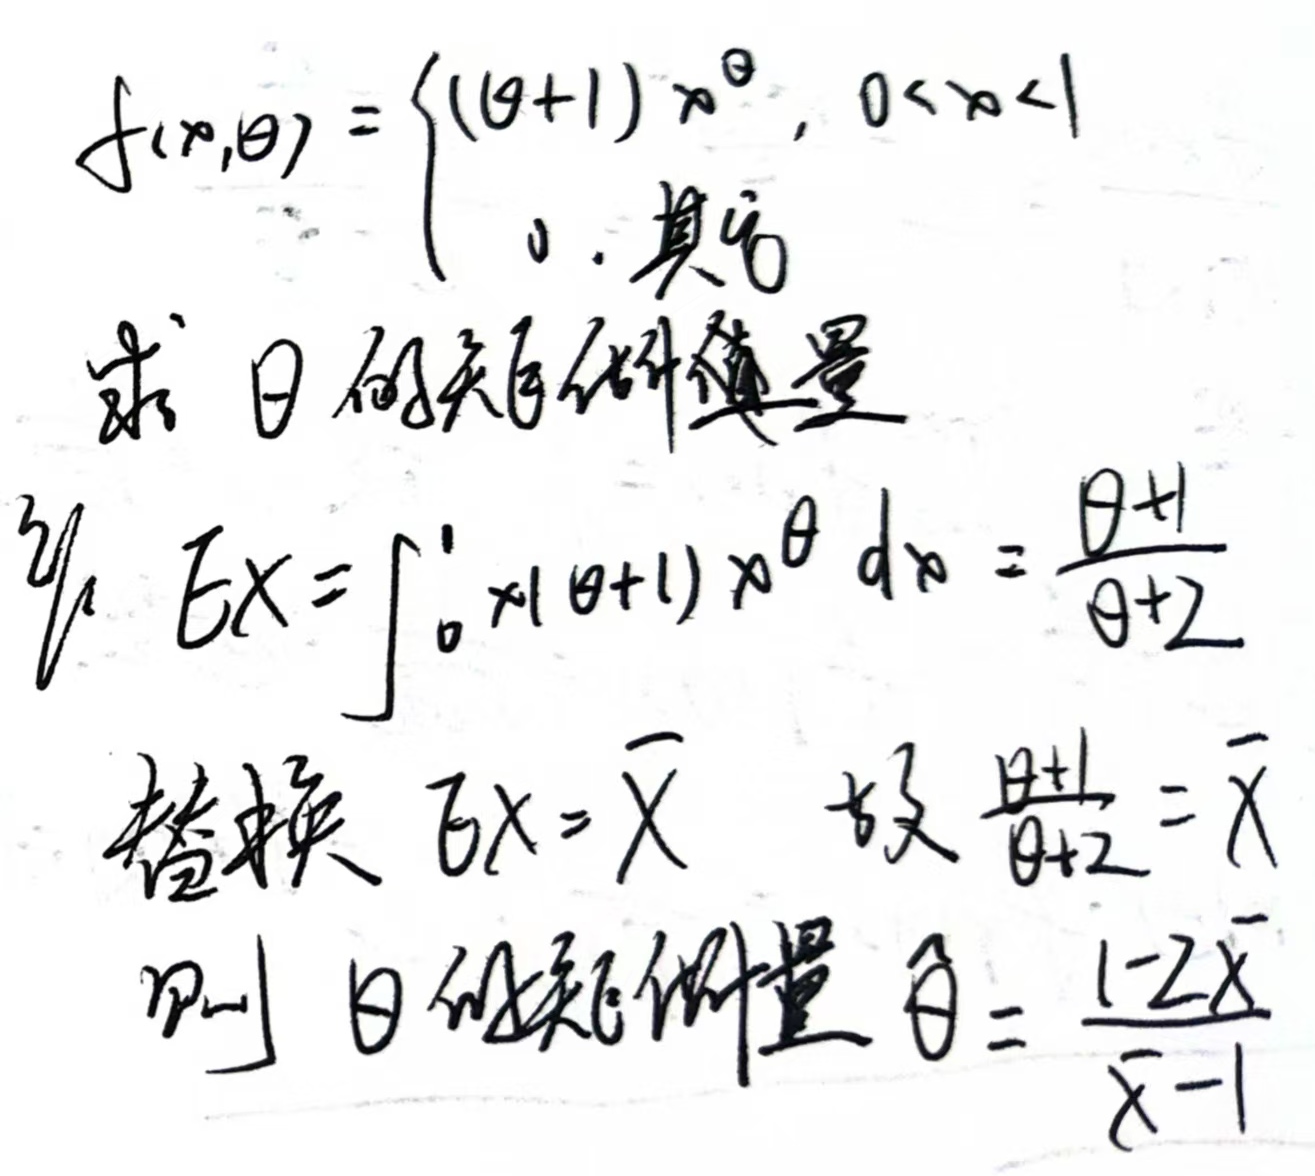 f(x,θ) = { (θ+1) x^θ, 0<x<1
0 . 其它
求 θ 的矩估计量
EX = ∫₀¹ x(θ+1) x^θ dx = (θ+1)/(θ+2)
替换 EX = X̄ 故 (θ+1)/(θ+2) = X̄
则 θ 的矩估计量 θ̂ = (1-2X̄)/(X̄-1)